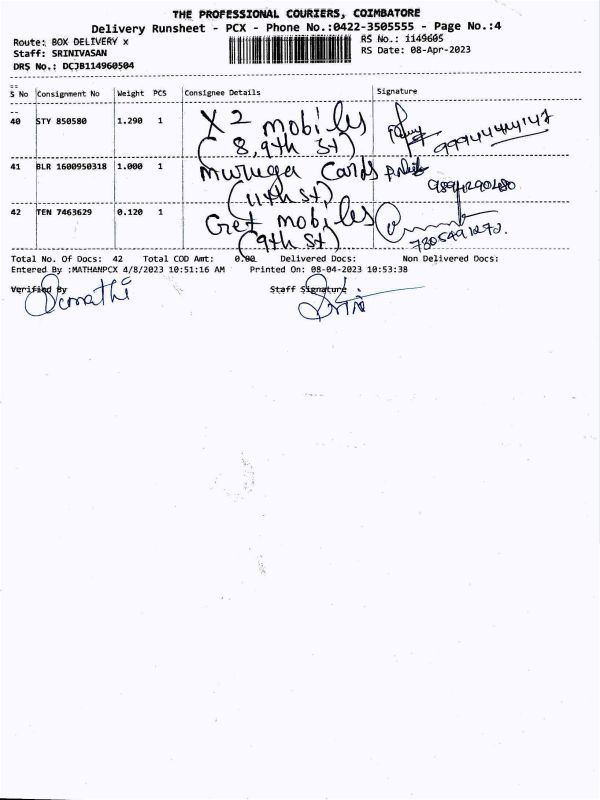 THE PROFESSIONAL COURIERS, COIMBATORE
Delivery Runsheet - PCX - Phone No.:0422-3505555 - Page No.:4
Route: BOX DELIVERY x
RS No.: 1149605
Staff: SRINIVASAN
RS Date: 08-Apr-2023
DRS No.: DCJB114960504
S No Consignment No Weight PCS Consignee Details Signature
40 STY 850580 1.290 1 X 2 mobiles
(8,9th St)
41 BLR 1600950318 1.000 1 Muruga Cards
9894290480
(11th St)
42 TEN 7463629 0.120 1 Get mobiles
(9th St)
7805491272.
Total No. Of Docs: 42 Total COD Amt: 0.00 Delivered Docs: Non Delivered Docs:
Entered By :MATHANPCX 4/8/2023 10:51:16 AM Printed On: 08-04-2023 10:53:38
Verified By Staff Signature